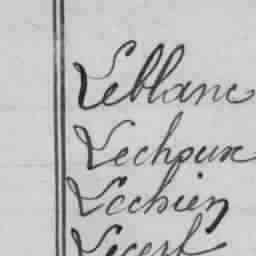 Leblanc
Lechoux
Lechien
Lecerf